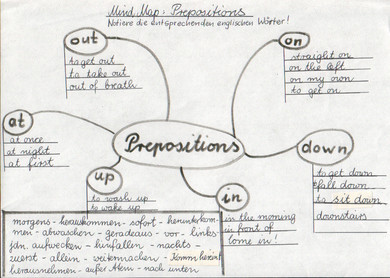 Mind Map: Prepositions
Notiere die entsprechenden englischen Wörter!
out
to get out
to take out
out of breath
on
straight on
on the left
on my own
to get on
at
at once
at night
at first
Prepositions
down
to get down
fall down
to sit down
downstairs
up
to wash up
to wake up
in
in the morning
in front of
come in!
morgens - herauskommen - sofort - herunterkom-
men - abwaschen - geradeaus - vor - links -
jdn. aufwecken - hinfallen - nachts -
zuerst - allein - weitermachen - Komm herein!
herausnehmen - außer Atem - nach unten